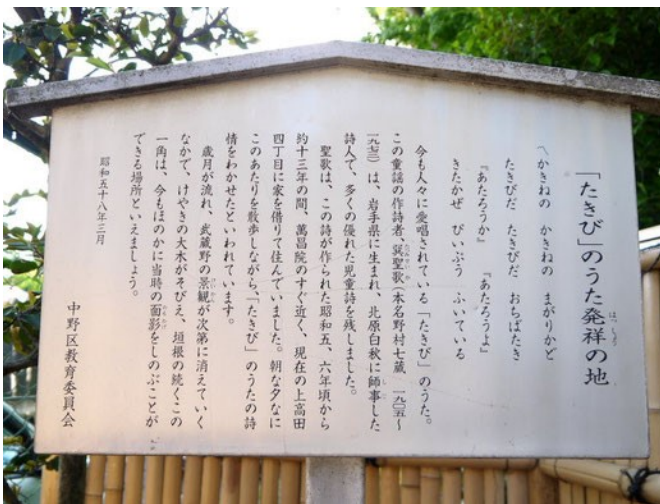 「たきび」のうた発祥の地
はっしょう
〽かきねの かきねの まがりかど
たきびだ たきびだ おちばたき
『あたろうか』 『あたろうよ』
きたかぜ ぴいぷう ふいている
今も人々に愛唱されている「たきび」のうた。
この童謡の作詩者、巽聖歌(本名野村七蔵 一九〇五〜
たつみせいか
一九七三)は、岩手県に生まれ、北原白秋に師事した
しじ
詩人で、多くの優れた児童詩を残しました。
聖歌は、この詩が作られた昭和五、六年頃から
約十三年の間、萬昌院のすぐ近く、現在の上高田
四丁目に家を借りて住んでいました。朝な夕なに
このあたりを散歩しながら、「たきび」のうたの詩
情をわかせたといわれています。
歳月が流れ、武蔵野の景観が次第に消えていく
けいかん
なかで、けやきの大木がそびえ、垣根の続くこの
一角は、今もほのかに当時の面影をしのぶことが
おもかげ
できる場所といえましょう。
昭和五十八年三月
中野区教育委員会